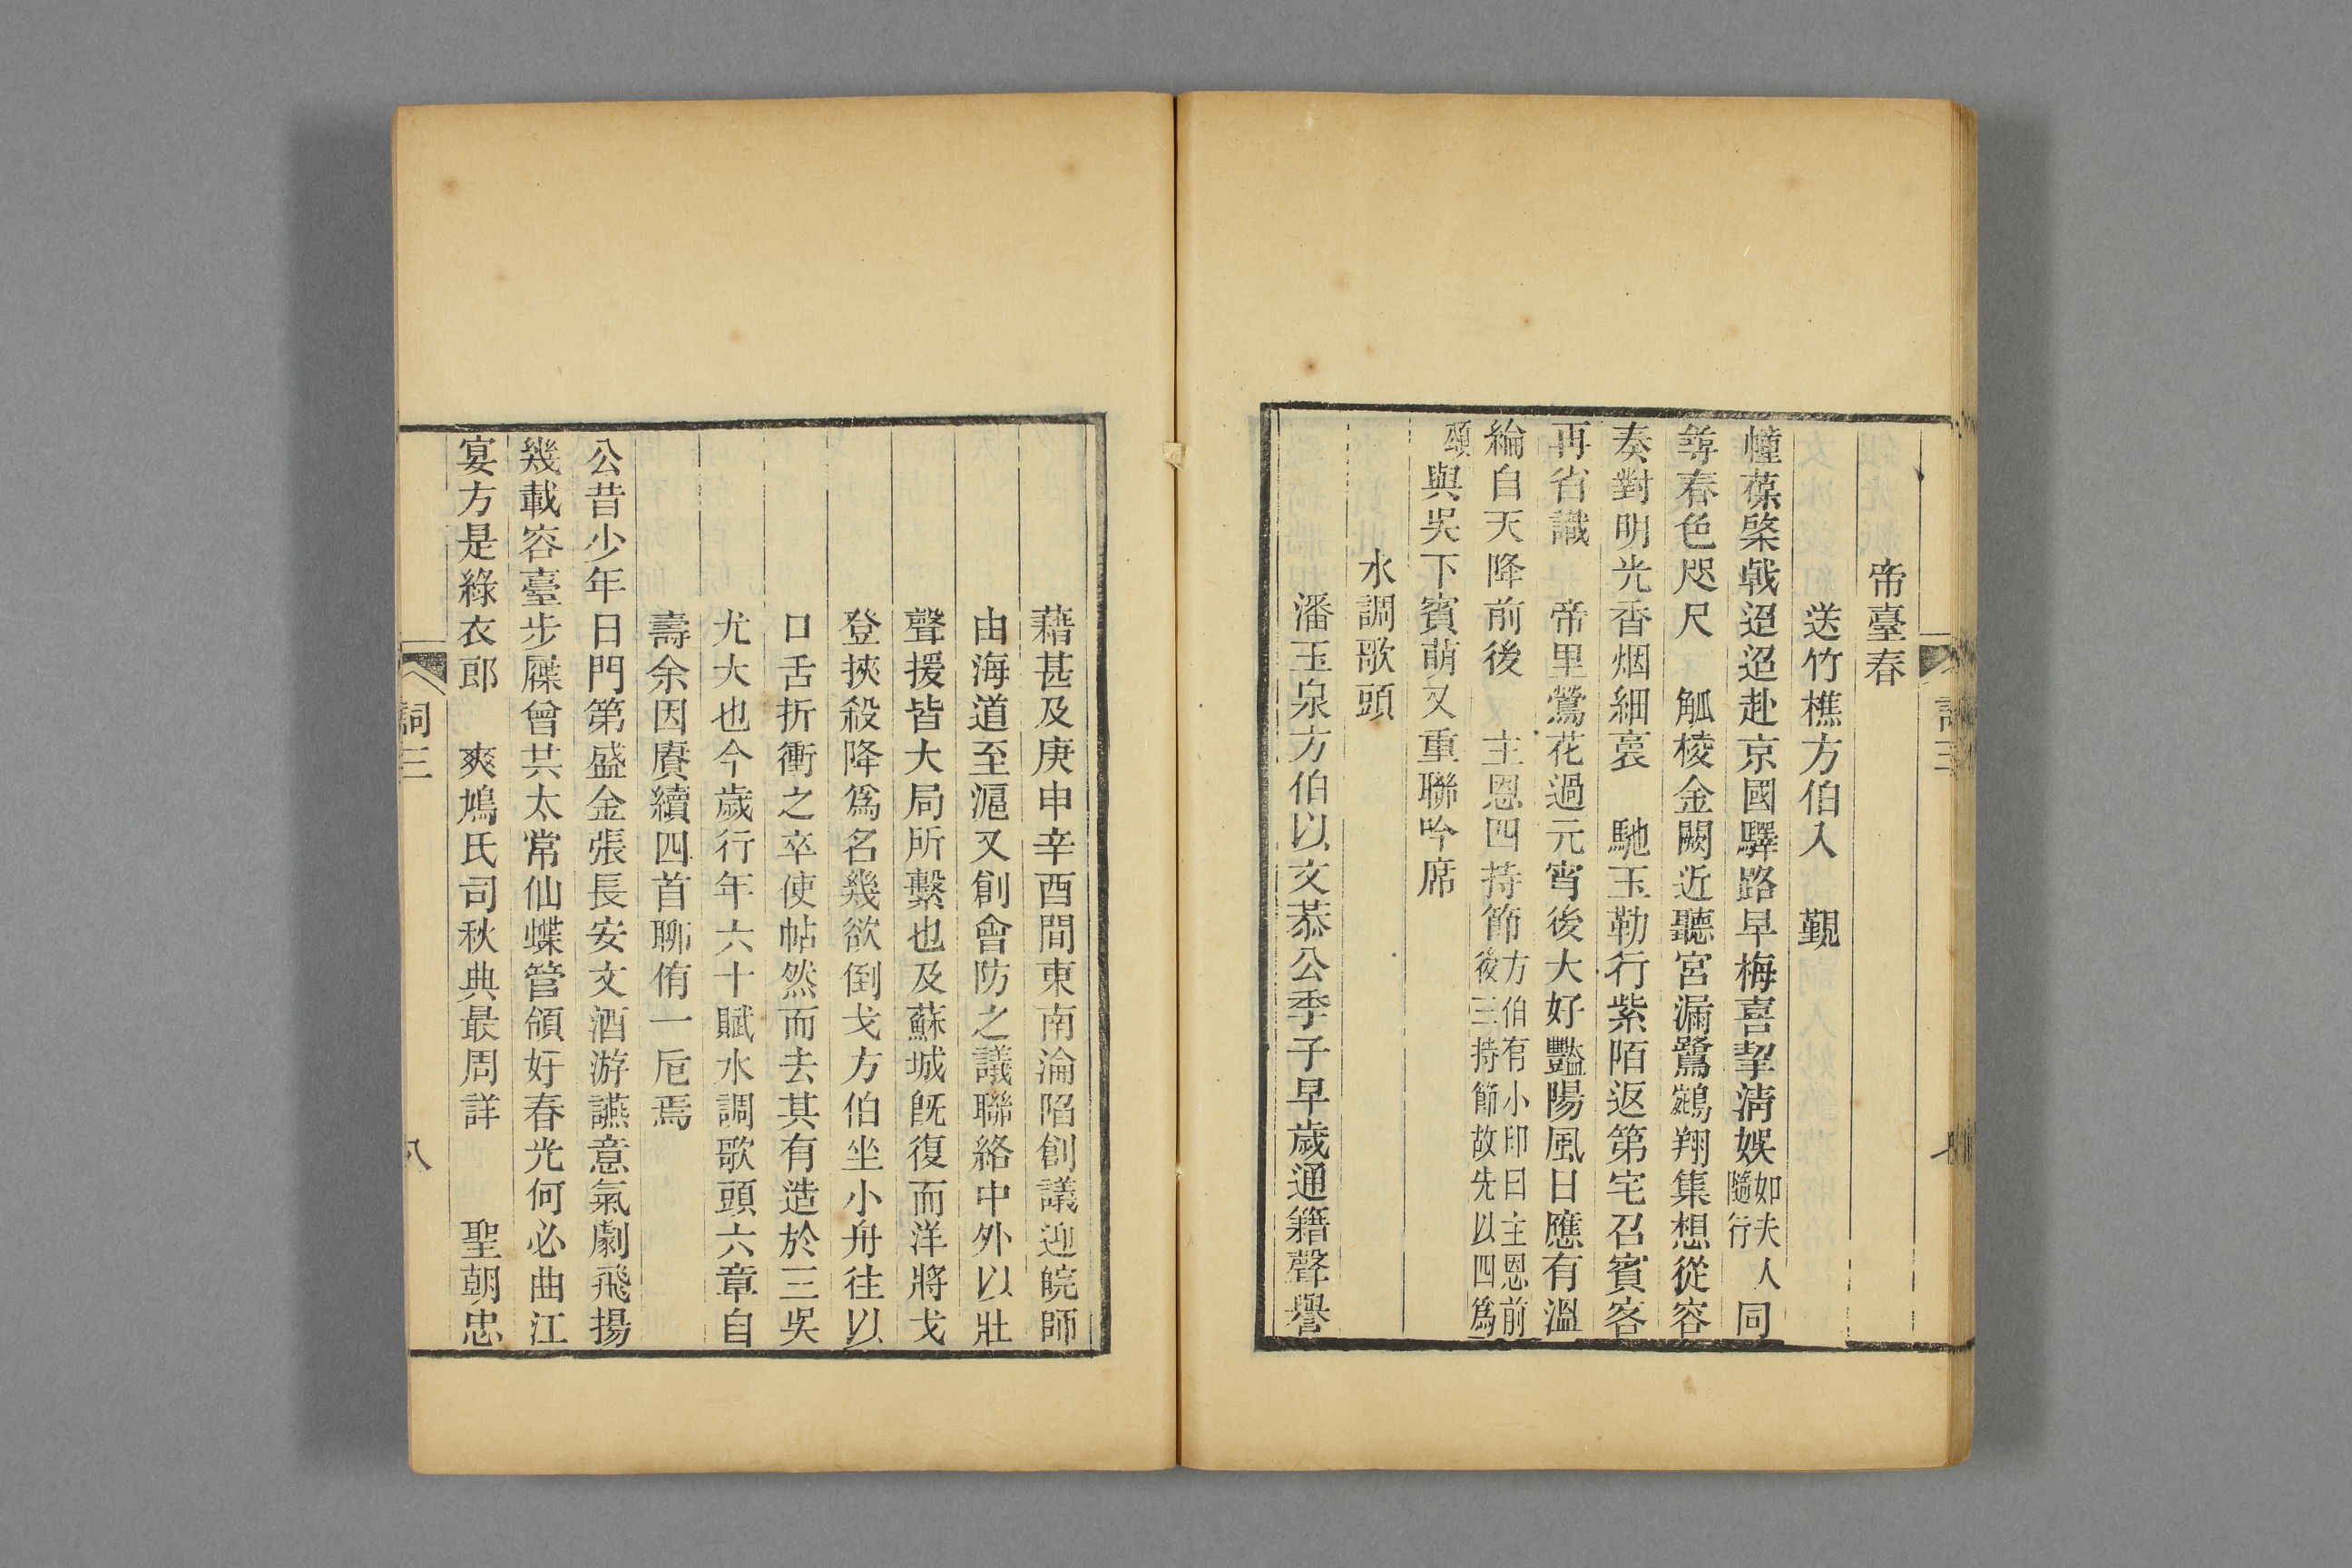 帝臺春
送竹樵方伯入　覲
幢葆棨戟迢迢赴京國驛路早梅喜挈淸娛如夫人同隨行
尋春色咫尺　觚棱金闕近聽宮漏鷺鵷翔集想從容
奏對明光香烟細裛　馳玉勒行紫陌返第宅召賓客
再省識　帝里鶯花過元宵後大好豔陽風日應有溫
綸自天降前後　主恩四持節方伯有小印曰主恩前後三持節故先以四爲
頌與吳下賓萌又重聯吟席
水調歌頭
潘玉泉方伯以文恭公季子早歲通籍聲譽
詞三
七
藉甚及庚申辛酉間東南淪陷創議迎皖師
由海道至滬又創會防之議聯絡中外以壯
聲援皆大局所繫也及蘇城旣復而洋將戈
登挾殺降爲名幾欲倒戈方伯坐小舟往以
口舌折衝之卒使帖然而去其有造於三吳
尤大也今歲行年六十賦水調歌頭六章自
壽余因賡續四首聊侑一卮焉
公昔少年日門第盛金張長安文酒游讌意氣劇飛揚
幾載容臺步屧曾共太常仙蝶管領好春光何必曲江
宴方是綠衣郎　爽鳩氏司秋典最周詳　　聖朝忠
詞三
八